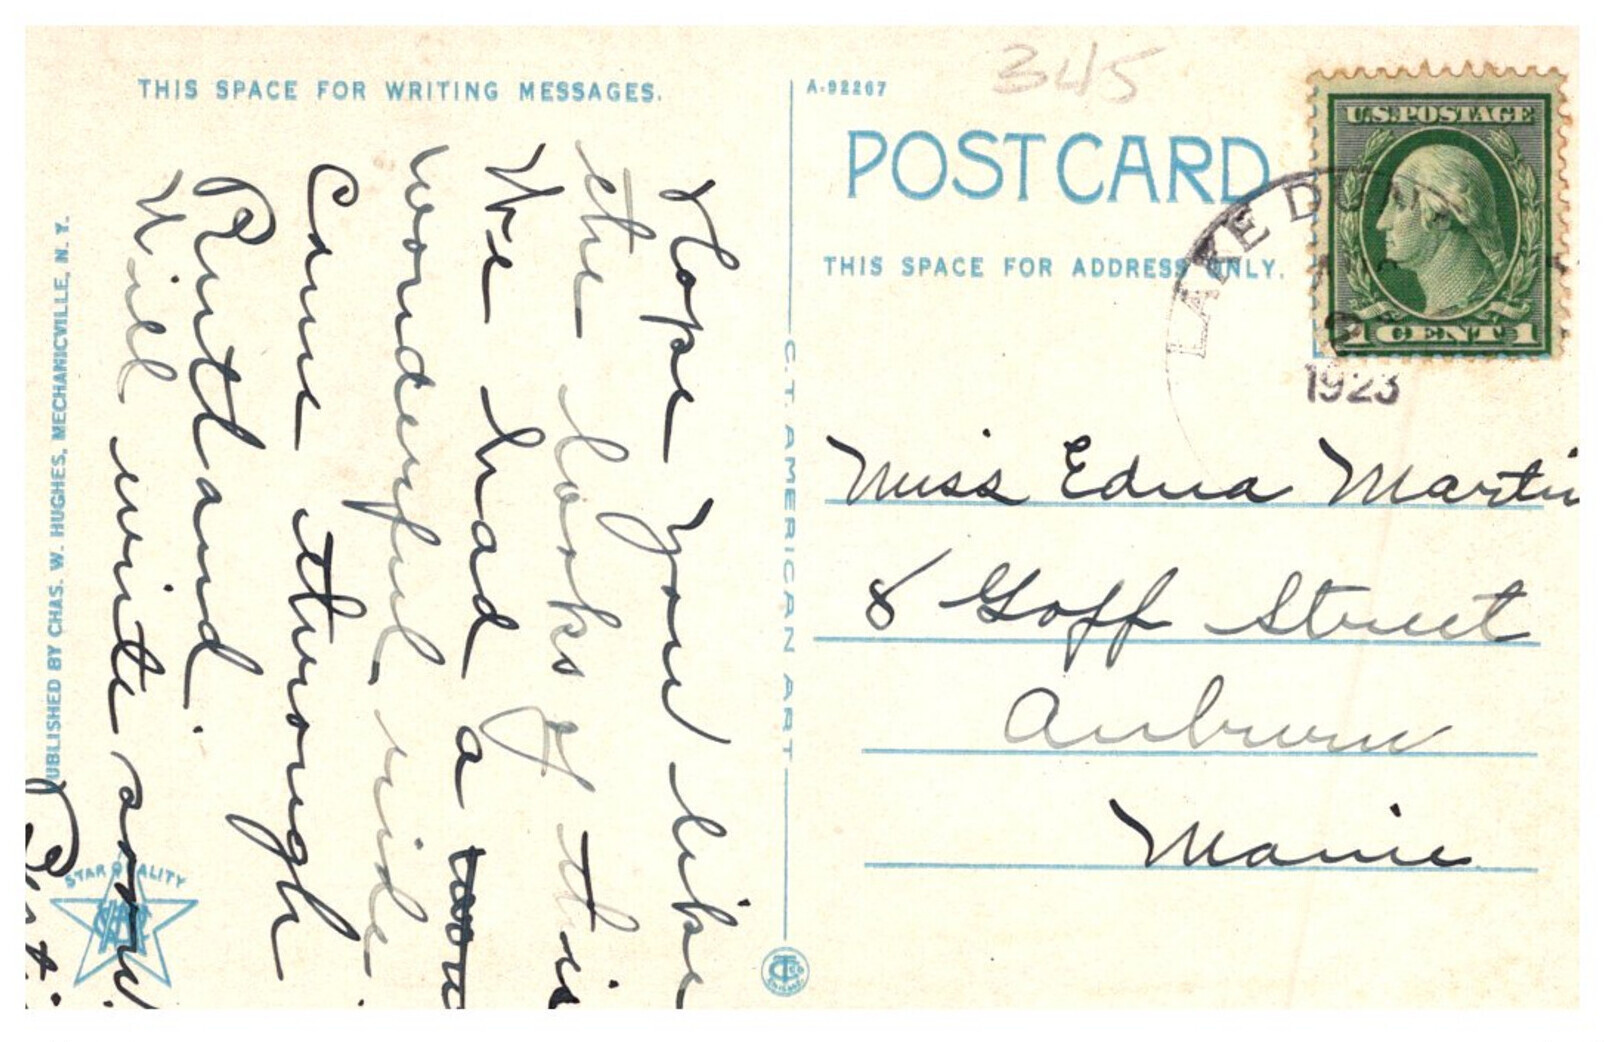 THIS SPACE FOR WRITING MESSAGES.
Hope you like
the looks of this
We had a
wonderful ride
Came through
Rutland.
Will write soon
PUBLISHED BY CHAS. W. HUGHES, MECHANICVILLE, N. Y.
STAR QUALITY
C. T. AMERICAN ART
A-92267
345
POST CARD
THIS SPACE FOR ADDRESS ONLY.
U.S. POSTAGE
1 CENT 1
LAKE DUN
1923
Miss Edna Martin
8 Goff Street
Auburn
Maine